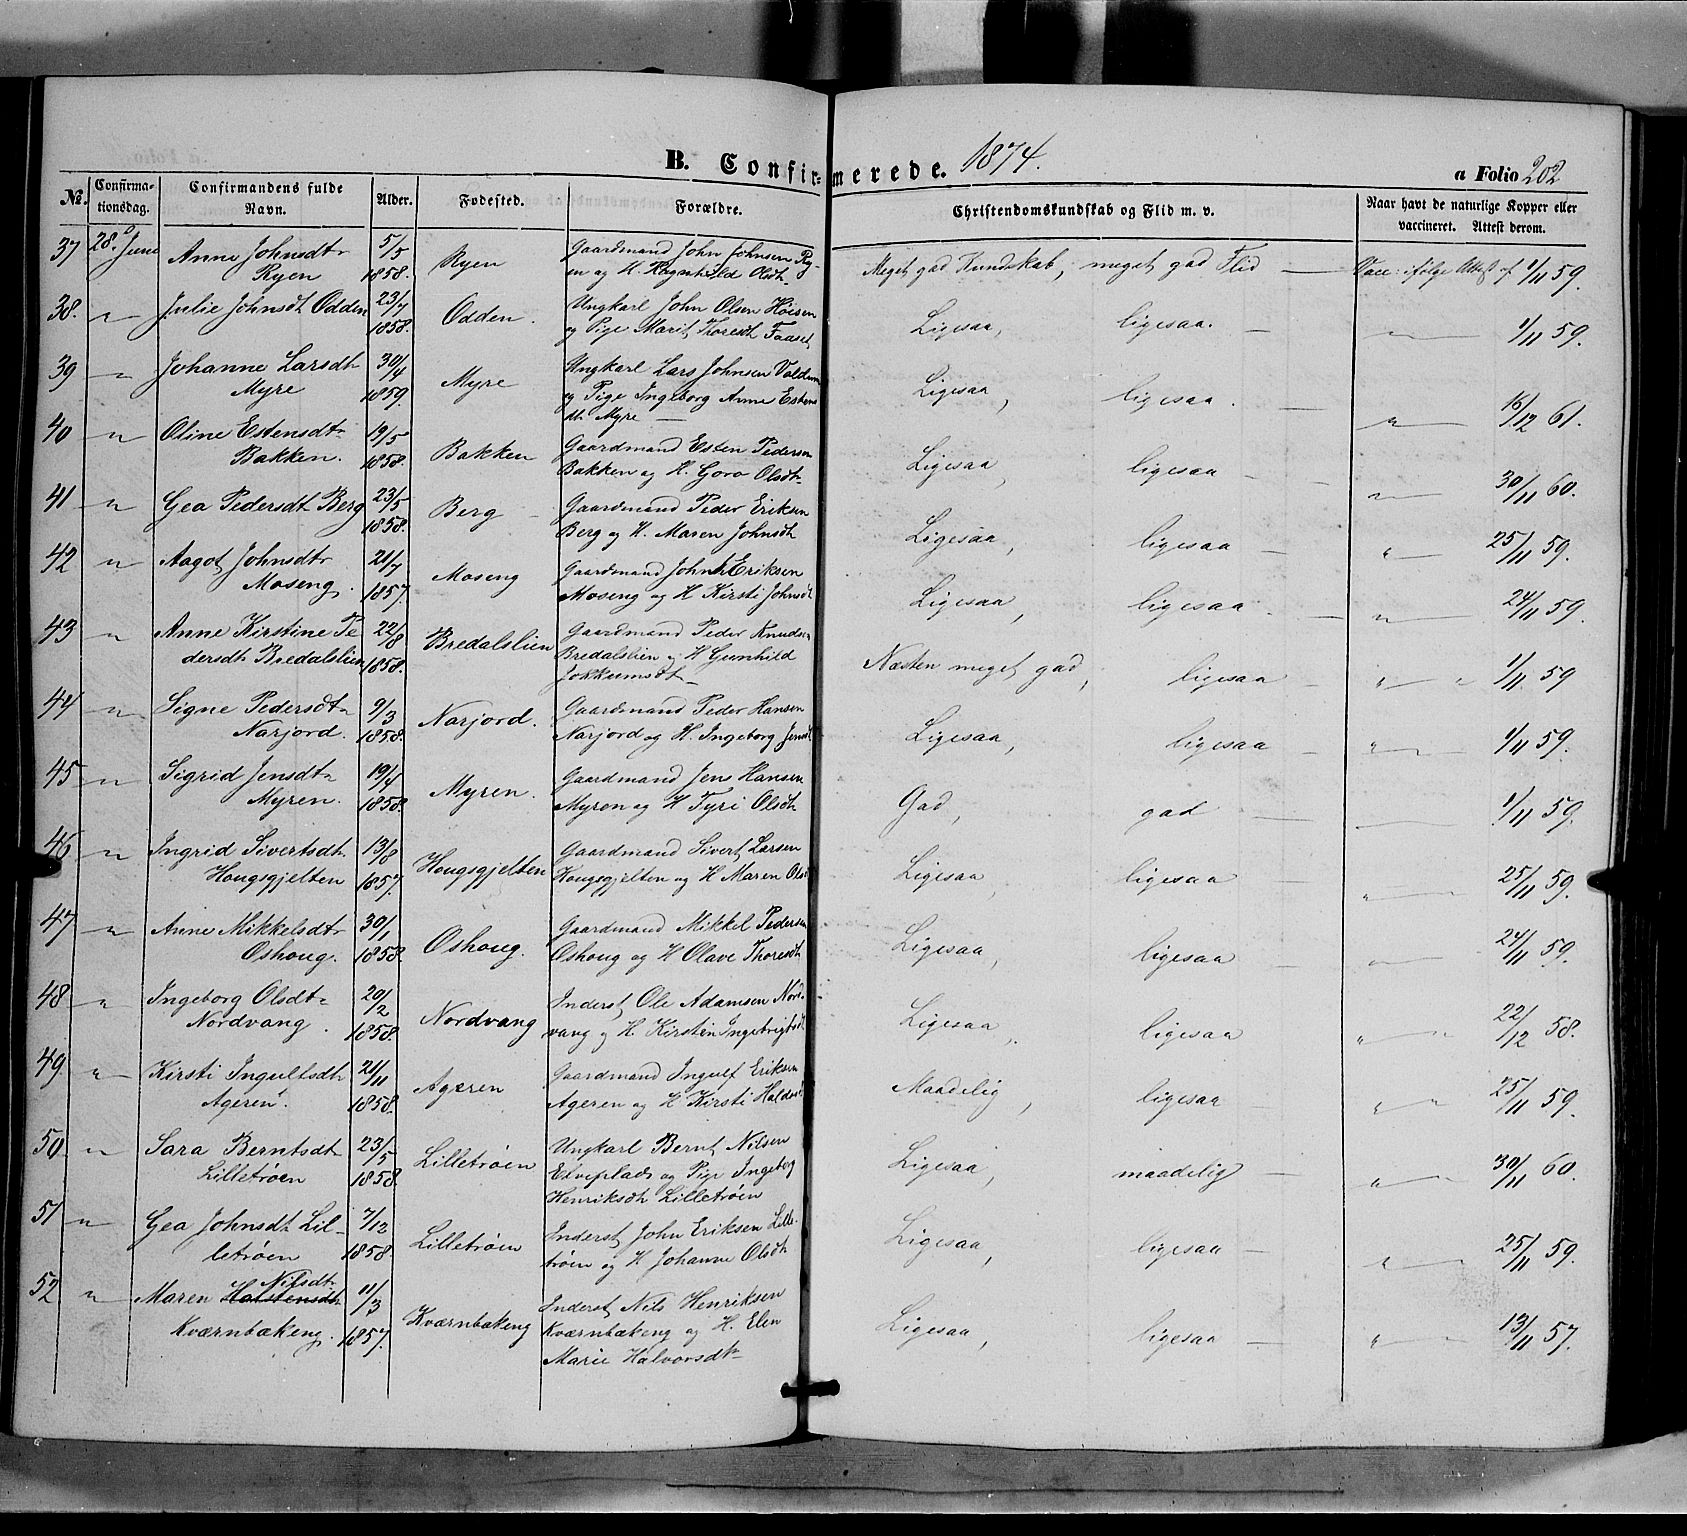 B. Confirmerede. 1874.
a Folio 202
No.
Confirmationsdag.
Confirmandens fulde Navn.
Alder.
Fødested.
Forældre.
Christendomskundskab og Flid m. v.
Naar havt de naturlige Kopper eller vaccineret. Attest derom.
37 28. Juni Anne Johnsdtr 5/5 Ryen Gaardmand John Johnsen Ry- Meget god Kundskab, meget god Flid — Vacc: ifølge Attest af 1/11 59.
Ryen 1858. en og H. Ragnhild Olsdtr
38. " Julie Johnsdt Odden 23/7 Odden. Ungkarl John Olsen Høisen Ligesaa, ligesaa. — " 1/11 59.
1858. og Pige Marit Thoresdt Faaset
39 " Johanne Larsdtr 30/4 Myre Ungkarl Lars Johnsen Voldum Ligesaa, ligesaa. — " 16/12 61.
Myre 1859. og Pige Ingeborg Anne Estens
dtr Myre —
40 " Oline Estensdtr 19/5 Bakken Gaardmand Esten Pedersen Ligesaa, ligesaa — " 30/11 60.
Bakken. 1858. Bakken og H. Goro Olsdtr
41 " Gea Pedersdt Berg 23/5 Berg Gaardmand Peder Eriksen Ligesaa, ligesaa — " 25/11 59.
1858. Berg og H. Maren Johnsdt
42 " Aagot Johnsdtr 21/7 Moseng Gaardmand John Eriksen Ligesaa, ligesaa — " 24/11 59.
Moseng. 1857. Moseng og H Kirsti Johnsdt
43 " Anne Kirstine Pe 22/8 Bredalslien Gaardmand Peder Knudsen Næsten meget god, ligesaa — " " 1/11 59
dersdtr Bredalslien 1858. Bredalslien og H Gunhild
Jokkumsdt —
44 " Signe Pedersdtr 9/3 Narjord. Gaardmand Peder Hansen Ligesaa, ligesaa — " 1/11 59.
Narjord. 1858. Narjord og H. Ingeborg Jensdt
45 " Sigrid Jensdtr 19/4 Myren. Gaardmand Jens Hansen God, god — 1/11 59.
Myren. 1858. Myren og H Tyri Olsdtr
46 " Ingrid Sivertsdtr 13/8 Hougsgjelten Gaardmand Sivert Larsen Ligesaa, ligesaa — " 25/11 59.
Hougsgjelten 1857. Hougsgjelten og H Maren Olsd
47 " Anne Mikkelsdtr 30/1 Oshoug. Gaardmand Mikkel Pedersen Ligesaa, ligesaa — " 24/11 59.
Oshoug. 1858. Oshoug og H Olave Thoresdt
48 " Ingeborg Olsdtr 20/2 Nordvang Inderst Ole Adamsen Nord- Ligesaa, ligesaa " " 22/12 58.
Nordvang. 1858. vang og H. Kirsten Ingebrigtsdt
49 " Kirsti Ingulfsdtr 21/11 Ageren Gaardmand Ingulf Eriksen Maadelig, ligesaa " " 25/11 59.
Ageren. 1858. Ageren og H Kirsti Haldorsd
50 " Sara Berntsdtr 23/5 Lilletrøen Ungkarl Bernt Nilsen Ligesaa, maadelig — " " 30/11 60.
Lilletrøen 1858. Elveplads og Pige Ingeborg
Henriksdtr Lilletrøen
51 " Gea Johnsdt Lil- 7/12 Lilletrøen Inderst John Eriksen Lille- Ligesaa, ligesaa — " 25/11 59.
letrøen 1858. trøen og H Johanne Olsdtr
52 " Nilsdtr
Maren Halstensdtr 11/3 Kværnbækeng Inderst Nils Henriksen Ligesaa, ligesaa — " " 13/11 57.
Kværnbækeng. 1857. Kværnbækeng og H. Elen
Marie Halvorsdtr